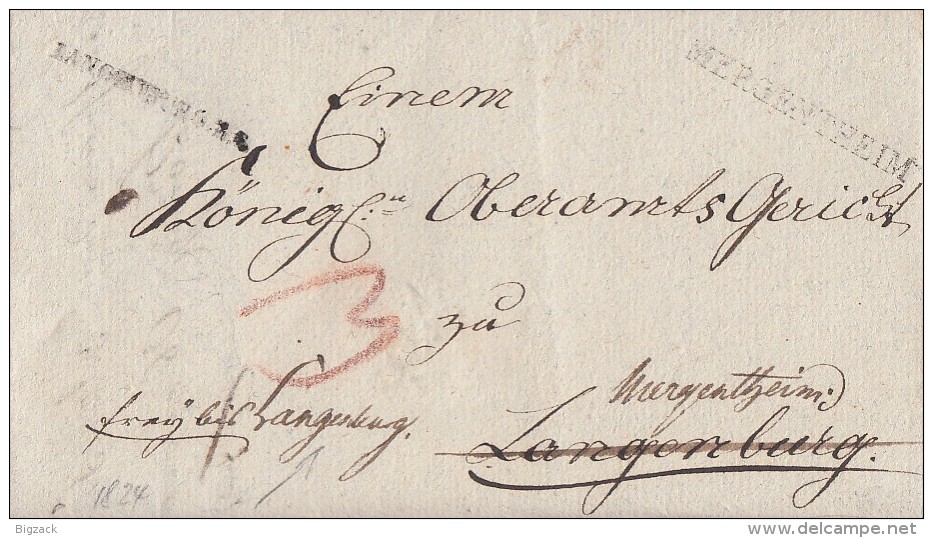 LANGENBURG.R.3.
MERGENTHEIM
Einem
Königl:n OberamtsGericht
3
zu
Mergentheim:
frey bis Langenburg.
Langenburg.
1824
Bigzack
delcampe.net